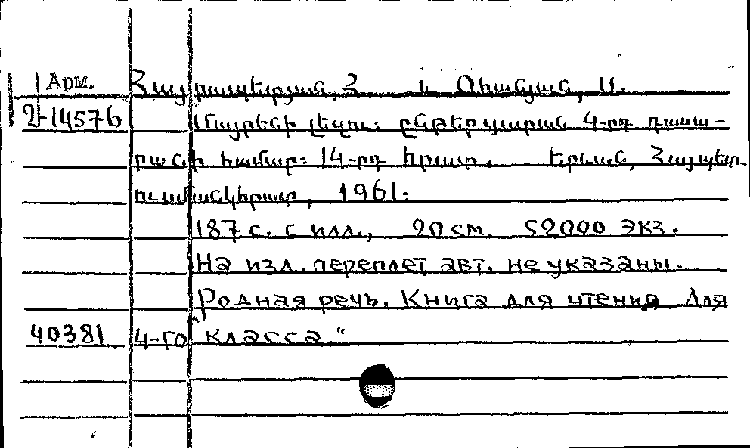 Арм. Հայրապետյան, Հ. և Օհանյան, Ա.
2-14576 Մայրենի լեզու: ընթերցարան 4-րդ դասա-
րանի համար: 14-րդ հրատ. Երևան, Հայպետ
ուսմանկհրատ, 1961:
187 с. с илл., 20 см. 52000 экз.
На изл. переплет, авт. не указаны.
"Родная речь. Книга для чтения для
40381 4-го класса."